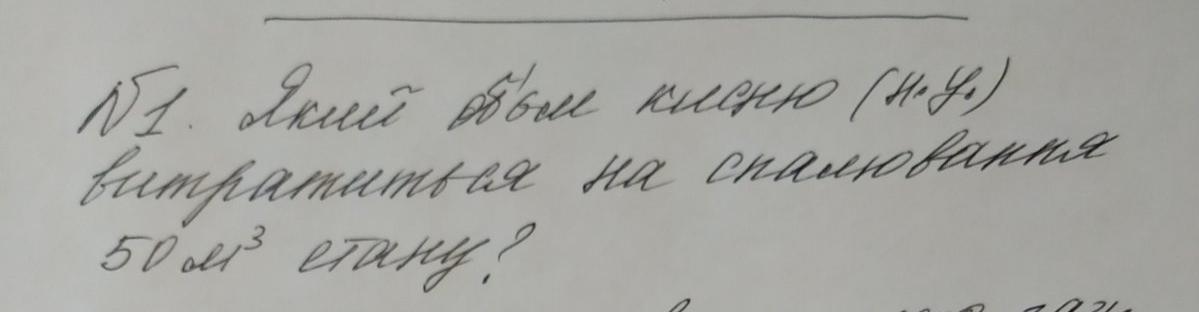 №1. Який об'єм кисню (н.у.)
витратиться на спалювання
50 м³ етану?